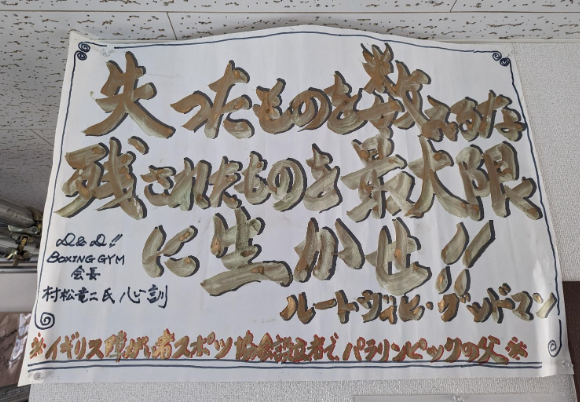 失ったものを数えるな
残されたものを最大限
に生かせ!!
D&D!!
BOXING GYM
会長
村松竜二氏 心訓
ルートヴィヒ・グッドマン
※イギリス障がい者スポーツ協会設立者で、パラリンピックの父※